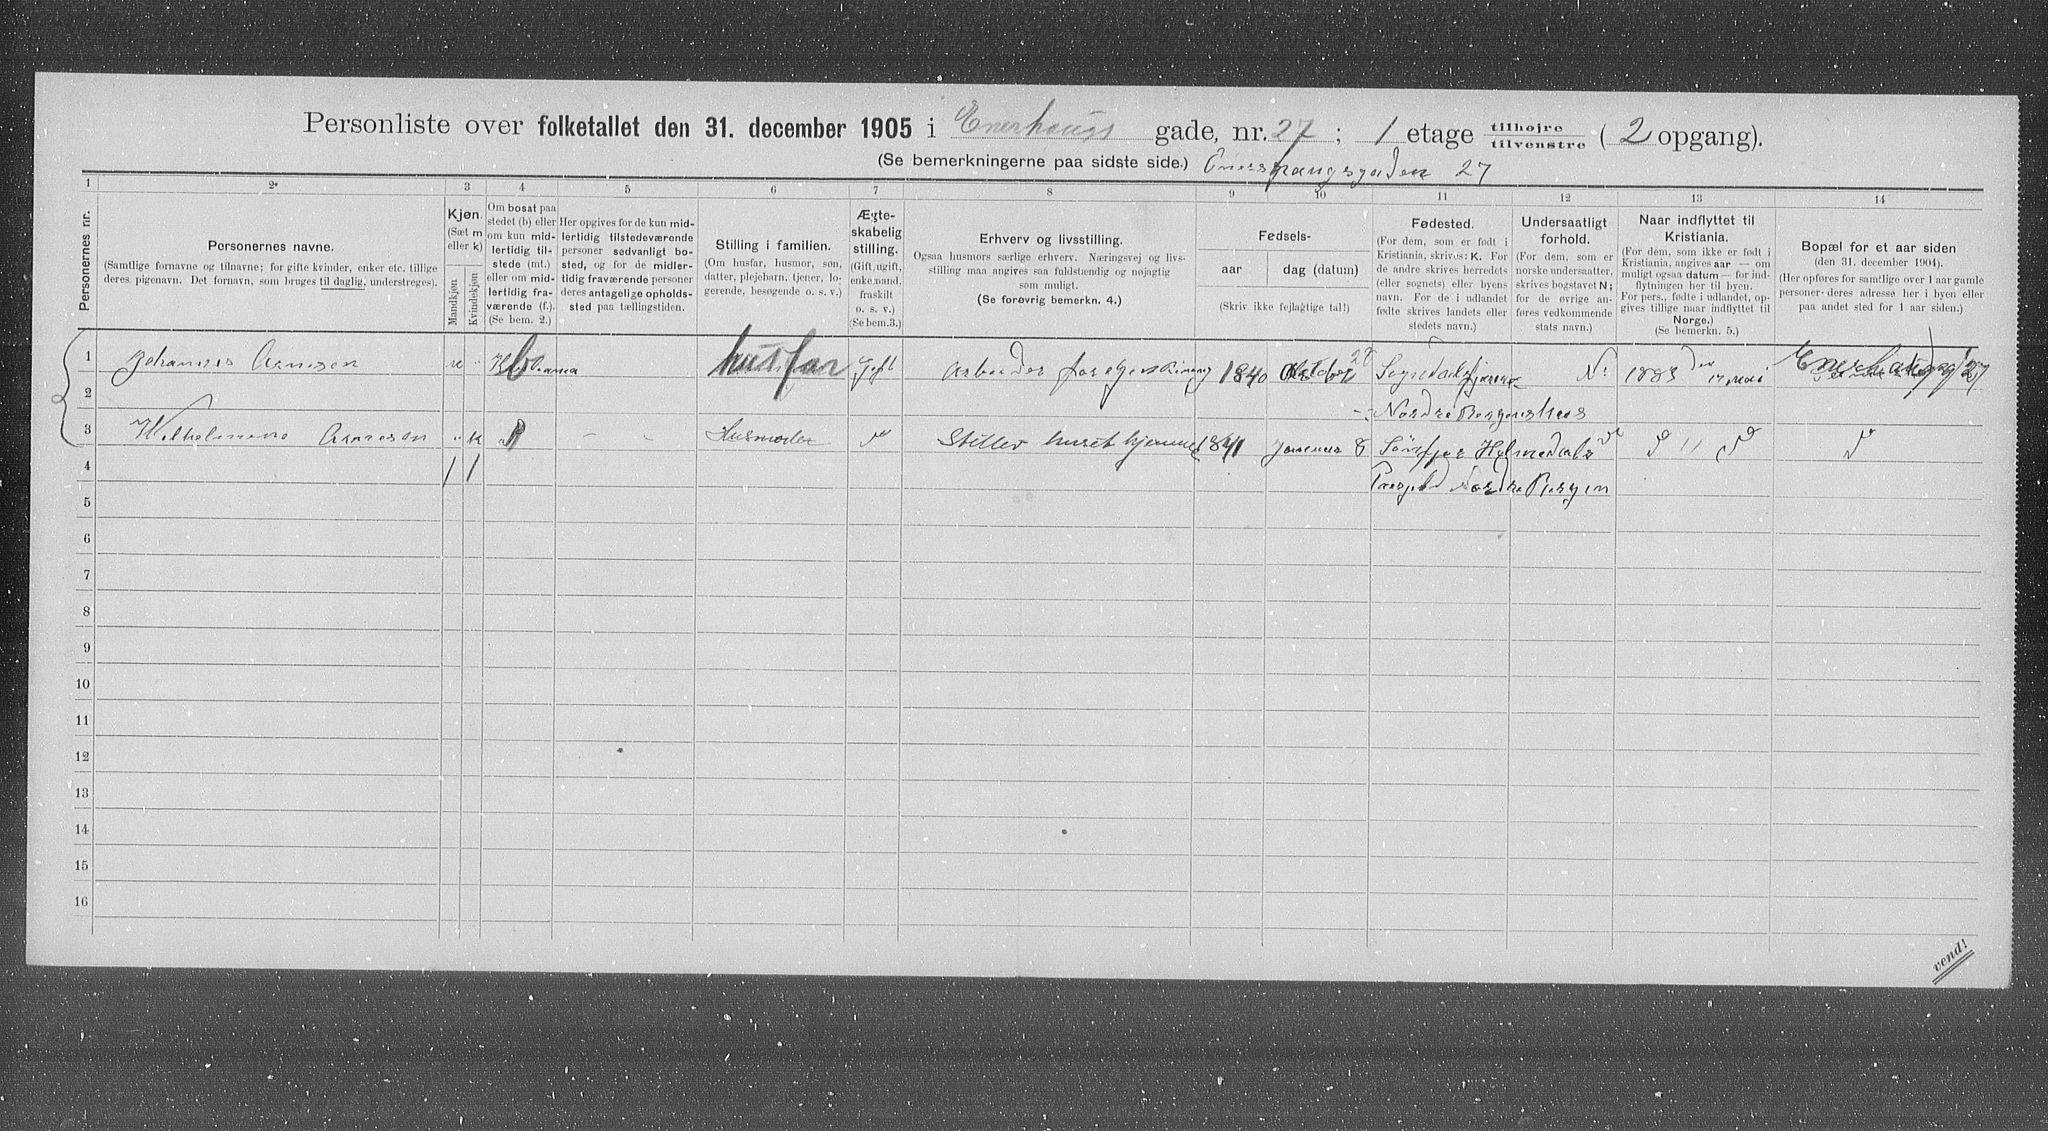 Personliste over folketallet den 31. december 1905 i Enerhaugs gade, nr. 27 ; 1 etage tilhøjre tilvenstre ( 2 opgang).
(Se bemerkningerne paa sidste side.) 27
1 2. 3 4 5 6 7 8 9 10 11 12 13 14
Personernes nr.
Personernes navne.
(Samtlige fornavne og tilnavne; for gifte kvinder, enker etc. tillige
deres pigenavn. Det fornavn, som bruges til daglig, understreges).
Kjøn.
(Sæt m
eller k)
Mandkjøn
Kvindekjøn
Om bosat paa
stedet (b) eller
om kun mid-
lertidig til-
stede (mt.)
eller om mid-
lertidig fra-
værende (f.).
(Se bem. 2.)
Her opgives for de kun mid-
lertidig tilstedeværende
personer sedvanligt bo-
sted, og for de midler-
tidig fraværende personer
deres antagelige opholds-
sted paa tællingstiden.
Stilling i familien.
(Om husfar, husmor, søn,
datter, plejebarn, tjener, lo-
gerende, besøgende o. s. v.)
Ægte-
skabelig
stilling.
(Gift, ugift,
enkemand,
fraskilt
o. s. v.)
(Se bem.3.)
Erhverv og livsstilling.
Ogsaa husmors særlige erhverv. Næringsvej og livs-
stilling maa angives saa fuldstændig og nøjagtig
som muligt.
(Se forøvrig bemerkn. 4.)
Fødsels-
aar
dag (datum)
(Skriv ikke fejlagtige tal!)
Fødested.
(For dem, som er født i
Kristiania, skrives: K. For
de andre skrives herredets
(eller sognets) eller byens
navn. For de i udlandet
fødte skrives landets eller
stedets navn.)
Undersaatligt
forhold.
(For dem, som er
norske undersaatter,
skrives bogstavet N;
for de øvrige an-
føres vedkommende
stats navn.)
Naar indflyttet til
Kristiania.
(For dem, som ikke er født i
Kristiania, angives aar — om
muligt ogsaa datum — for ind-
flytningen her til byen.
For pers., fødte i udlandet, op-
gives tillige naar indflyttet til
Norge.)
(Se bemerkn. 5.)
Bopæl for et aar siden
(den 31. december 1904).
(Her opføres for samtlige over 1 aar gamle
personer deres adresse her i byen eller
paa andet sted for 1 aar siden.)
1 Johannes Arnesen m " b husfar Gift Arbeider 1840 Oktober 28 N. 1883 den 17 mai Enerhaugg 27
2 Nordre Bergenshus
3 Wilhelmine Arnesen " k b - " Husmoder " Steller huset hjemme 1841 Januar 8 "
4 1 1 Nordre Bergen
5
6
7
8
9
10
11
12
13
14
15
16
vend!